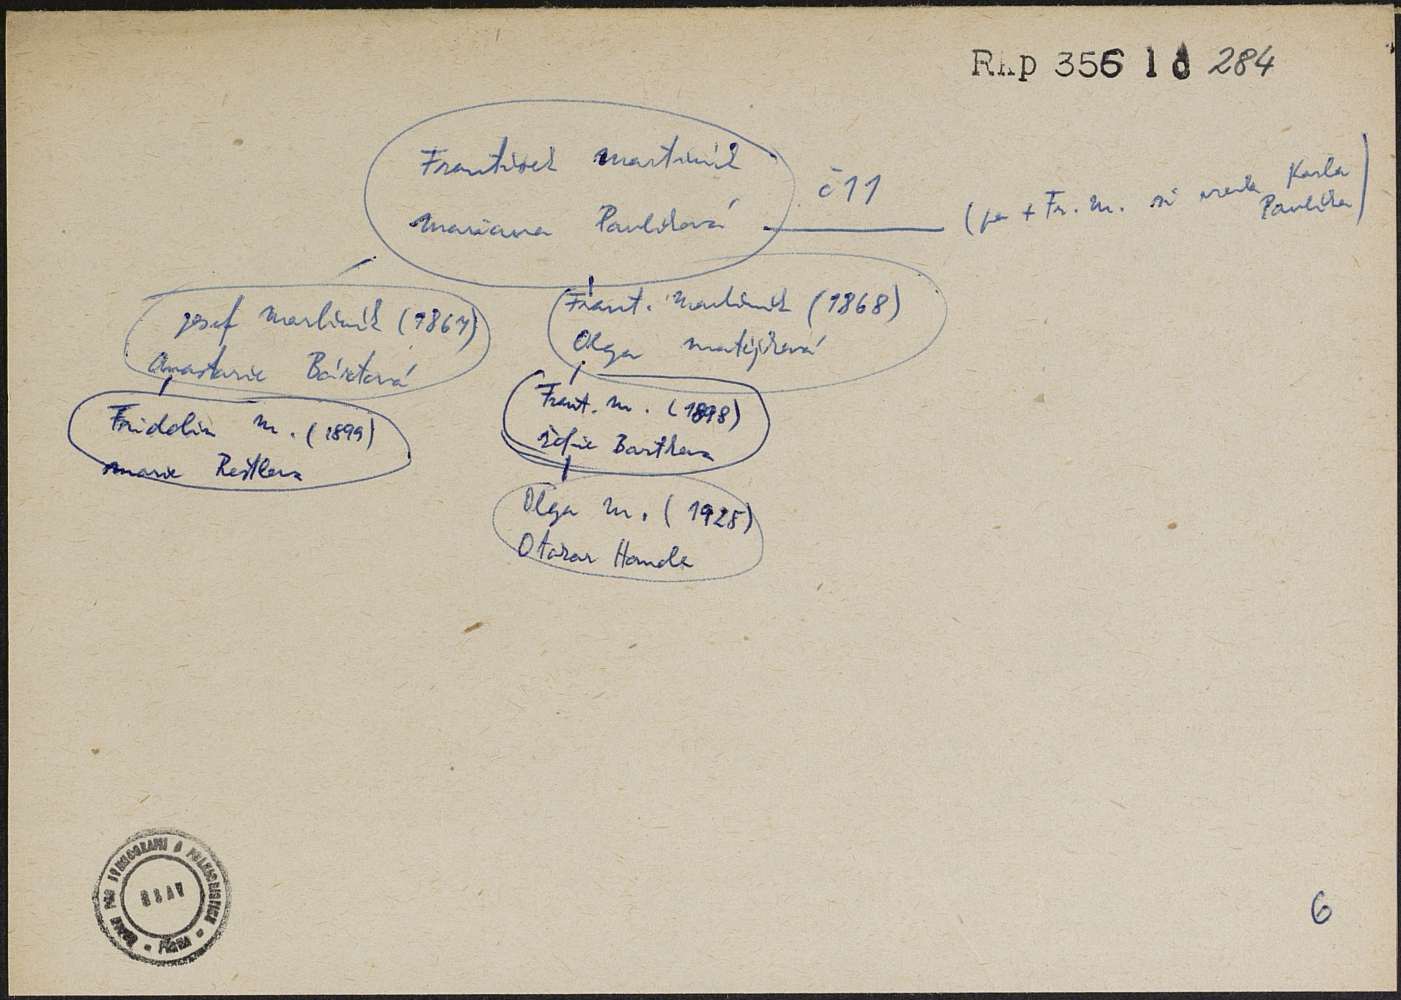 Rkp 356 10 284
František Martiník
Mariana Pavlíková
č 11
(po + Fr. M. si Karla
Pavlíka)
Josef Martiník (1867)
Anastazie Bártová
Frant. Martiník (1868)
Olga Matějková
Fridolin M. (1899)
Marie Restlera
Frant. M. (1898)
Žofie Barthera
Olga M. (1925)
Otakar Handl
ÚSTAV PRO ETNOGRAFII A FOLKLORISTIKU
ČSAV
PRAHA
6